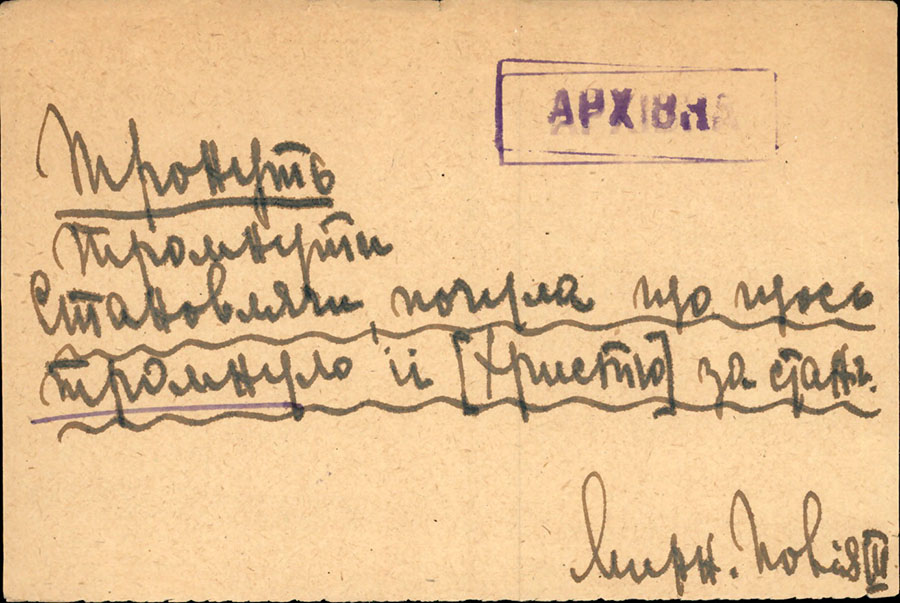 АРХІВНА
Тронуть
тромнути
Становлячи, почула що щось
тромнуло її [Христю] за стан.
Мирн. Повія III